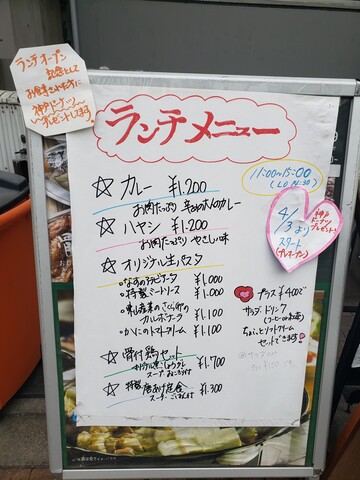 ランチオープン
記念として
お食事された方に
神戸ドーナツ
〜プレゼントします〜
ランチメニュー
11:00〜15:00
(LO 14:30)
☆ カレー ¥1.200
お肉たっぷり 辛めの大人のカレー
☆ ハヤシ ¥1.200
お肉たっぷり やさしい味
☆ オリジナル生パスタ
・なすのアラビアータ ¥1.000
・特製ミートソース ¥1.000
カルボナーラ ¥1.100
・かにのトマトクリーム ¥1.100
☆ 骨付鶏セット ¥1.700
スープ
☆ 特製 唐あげ定食 ¥1.300
スープ・ごはん付
4/3より
スタート
(プレオープン)
神戸
ドーナツ
プレゼント!
プラス¥400で
サラダ・ドリンク
(コーヒーor紅茶)
ちょこっとソフトクリーム
セットできます